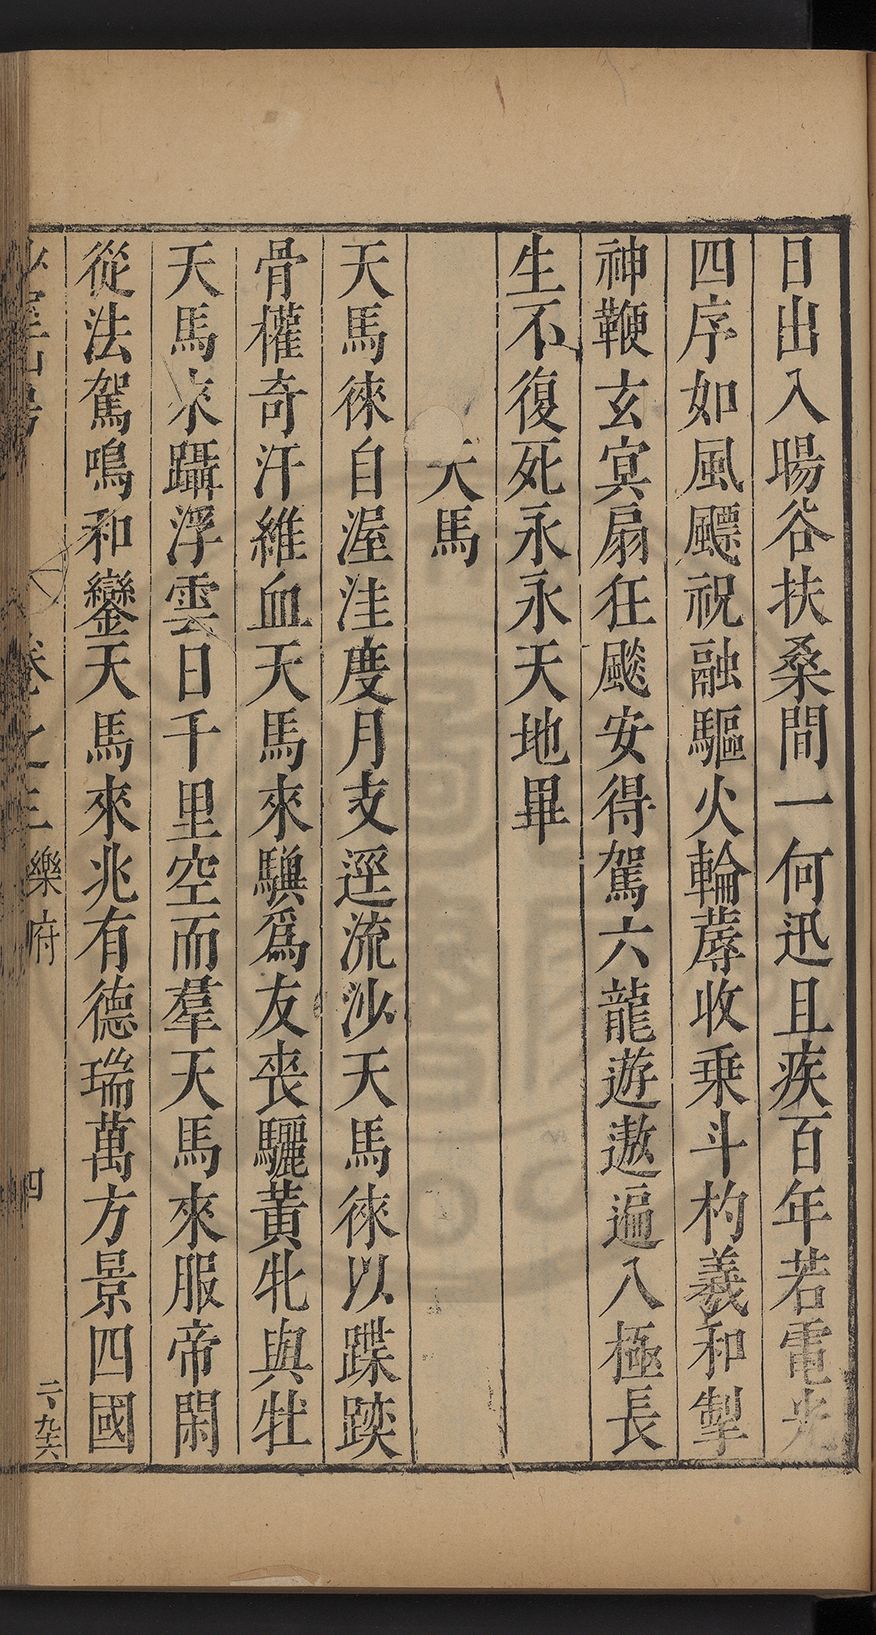 日出入暘谷扶桑間一何迅且疾百年若電光
四序如風飃祝融驅火輪蓐收乗斗杓羲和掣
神鞭玄冥扇狂颷安得駕六龍遊遨遍八極長
生不復死永永天地畢
天馬
天馬徠自渥洼度月支逕流沙天馬徠以蹀䠆
骨權奇汗維血天馬來騏爲友喪驪黃牝與牡
天馬來躡浮雲日千里空而羣天馬來服帝閑
從法駕鳴和鑾天馬來兆有德瑞萬方景四國
卷之三
樂府
四
二九六